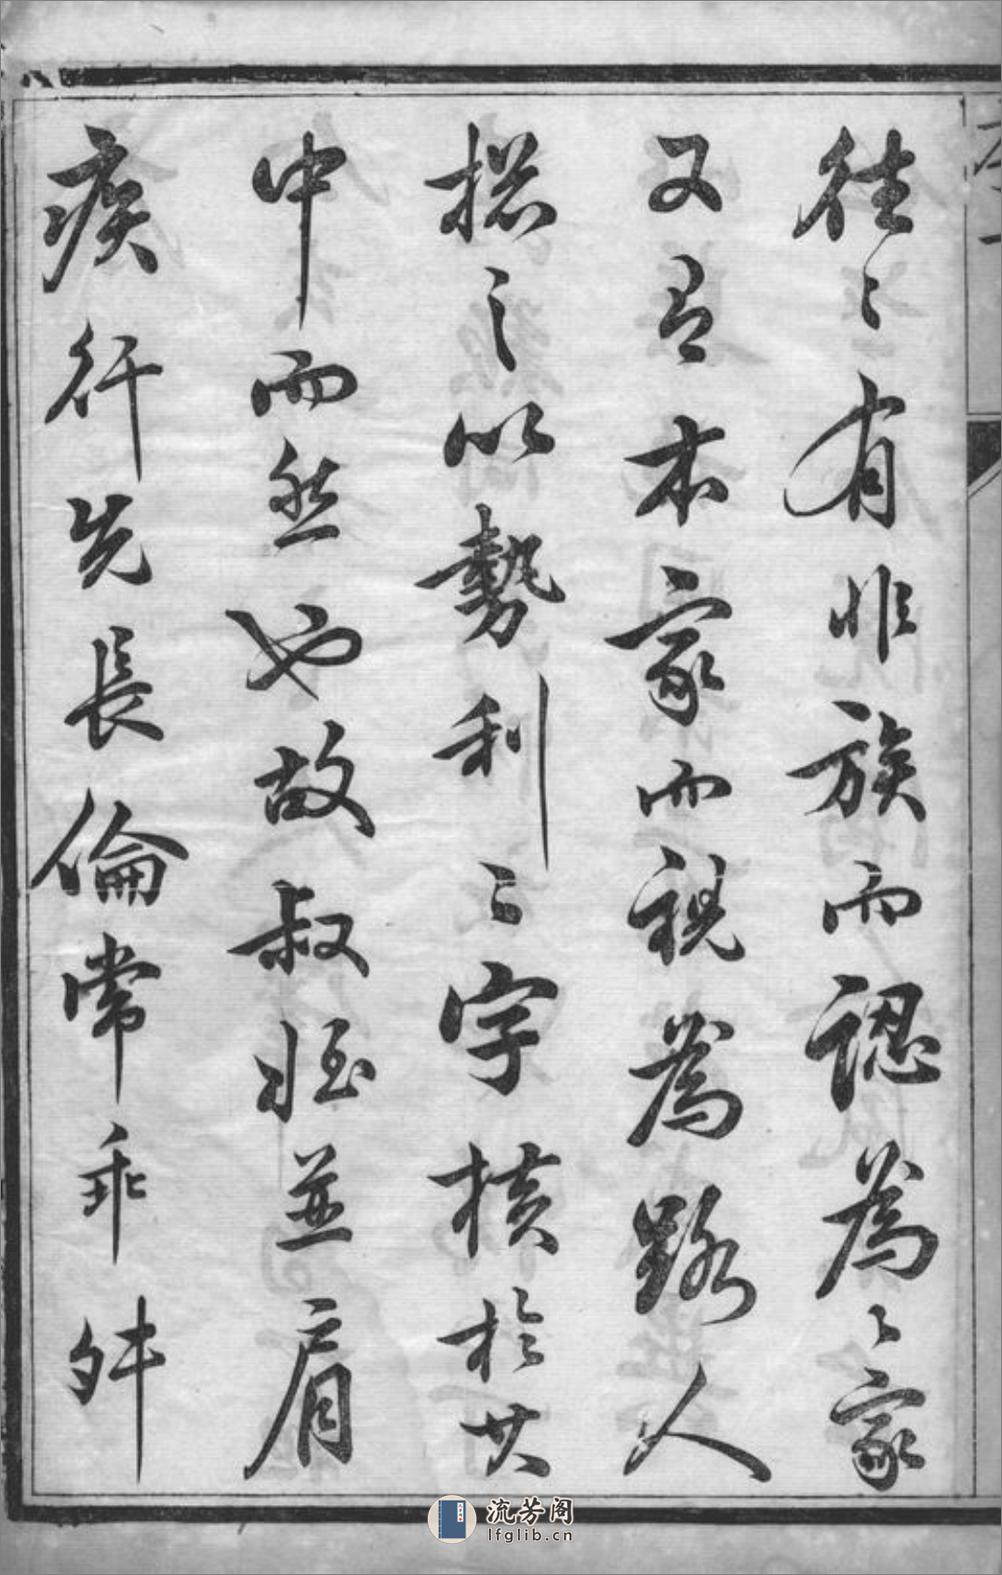 往〻有非族而認為〻家
又有本家而視為路人
揔之以勢利二字横於其
中而然也故叔姪並肩
疾行先長倫常乖舛
流芳阁
lfglib.cn